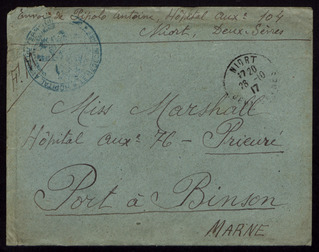 Envoi de Pepolo antoine, Hôpital Auxre 104
Niort, Deux-Sèvres
NIORT
17 20
26 - 10
17
DEUX SEVRES
Miss Marshall
Hôpital Auxre 76 - Prieuré
Port à Binson
MARNE